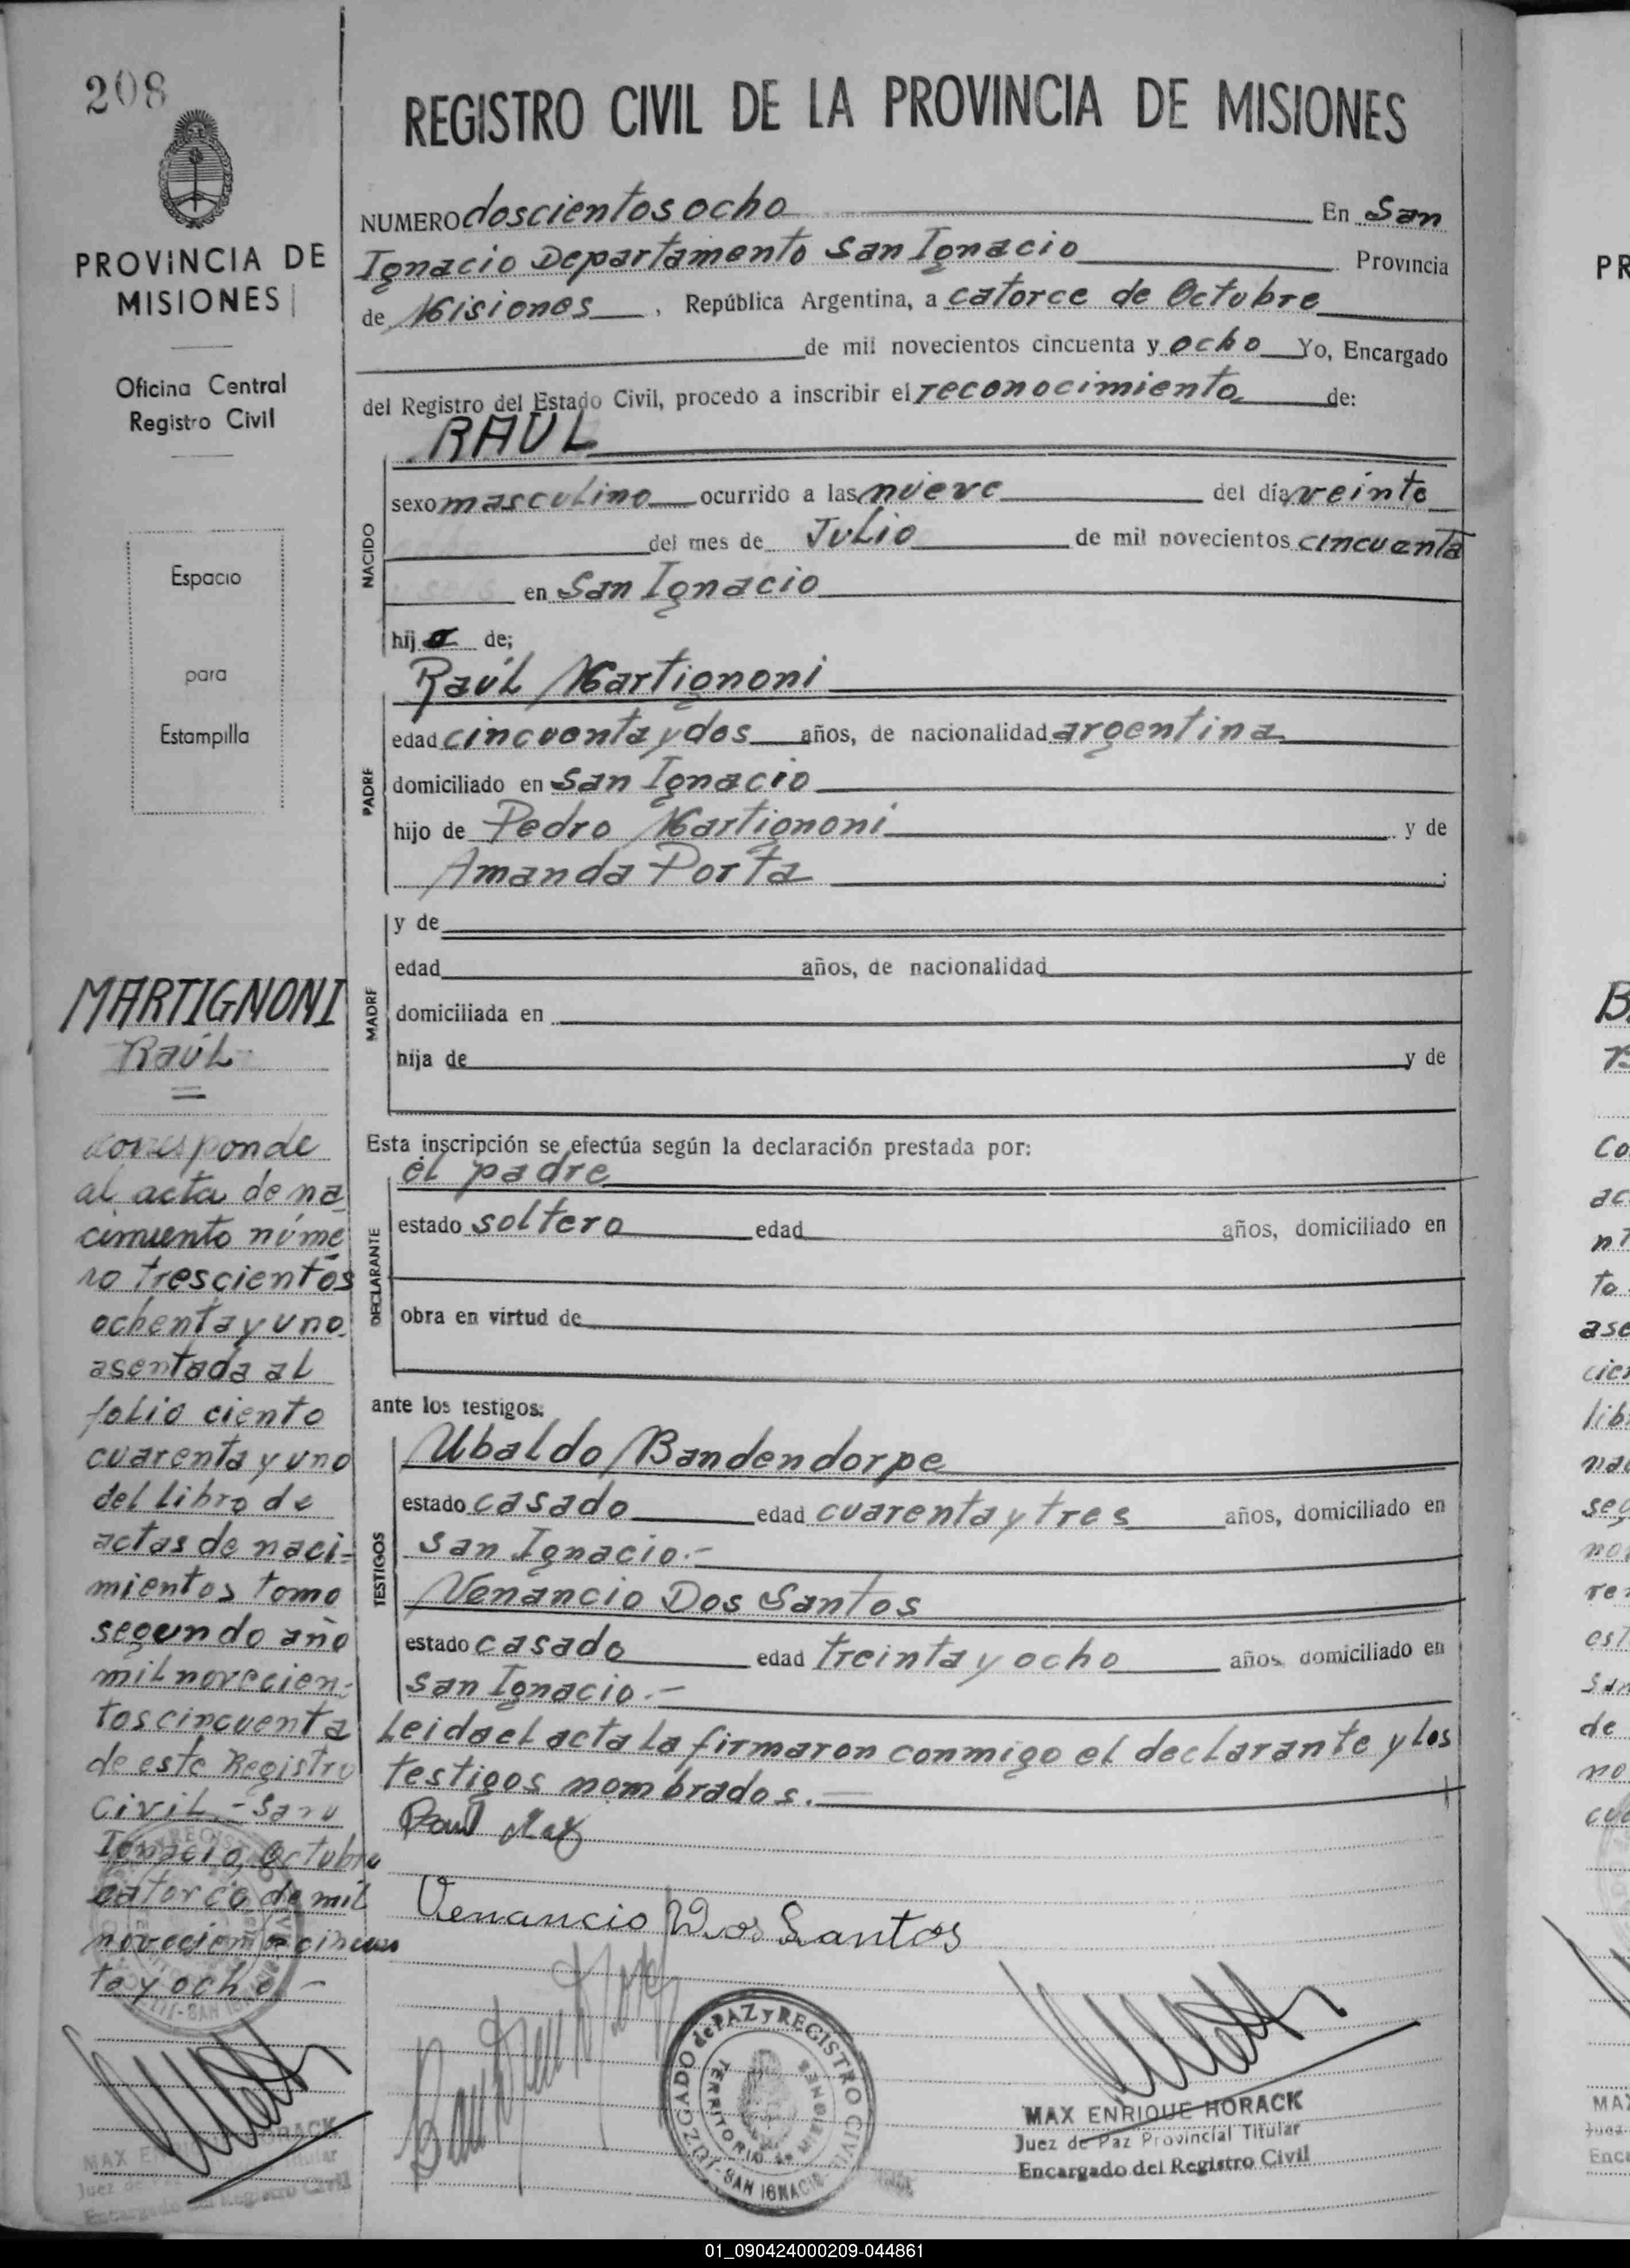 208
PROVINCIA DE
MISIONES
Oficina Central
Registro Civil
Espacio
para
Estampilla
MARTIGNONI
Raúl
=
corresponde
al acta de na
cimiento núme
ro trescientos
ochenta y uno
asentada al
folio ciento
cuarenta y uno
del libro de
actas de naci-
mientos tomo
segundo año
mil novecien-
tos cincuenta
de este Registro
Civil - San
Ignacio, Octubre
catorce de mil
novecientos cincuen
ta y ocho.-
MAX ENRIQUE HORACK
Juez de Paz Provincial Titular
Encargado del Registro Civil
REGISTRO CIVIL DE LA PROVINCIA DE MISIONES
NUMERO doscientos ocho En San
Ignacio Departamento San Ignacio Provincia
de Misiones, República Argentina, a catorce de Octubre
de mil novecientos cincuenta y ocho Yo, Encargado
del Registro del Estado Civil, procedo a inscribir el reconocimiento de:
RAUL
NACIDO
sexo masculino ocurrido a las nueve del día veinte
del mes de Julio de mil novecientos cincuenta
en San Ignacio
hijo de;
Raúl Martignoni
PADRE
edad cincuenta y dos años, de nacionalidad argentina
domiciliado en San Ignacio
hijo de Pedro Martignoni y de
Amanda Porta
MADRE
y de
edad años, de nacionalidad
domiciliada en
hija de y de
Esta inscripción se efectúa según la declaración prestada por:
el padre
DECLARANTE
estado soltero edad años, domiciliado en
obra en virtud de
ante los testigos:
TESTIGOS
Ubaldo Bandendorpe
estado casado edad cuarenta y tres años, domiciliado en
San Ignacio.-
Venancio Dos Santos
estado casado edad treinta y ocho años domiciliado en
San Ignacio.-
Leida el acta la firmaron conmigo el declarante y los
testigos nombrados.-
Venancio Dos Santos
JUZGADO de PAZ y REGISTRO CIVIL
TERRITORIO de MISIONES
-SAN IGNACIO-
MAX ENRIQUE HORACK
Juez de Paz Provincial Titular
Encargado del Registro Civil
01_090424000209-044861